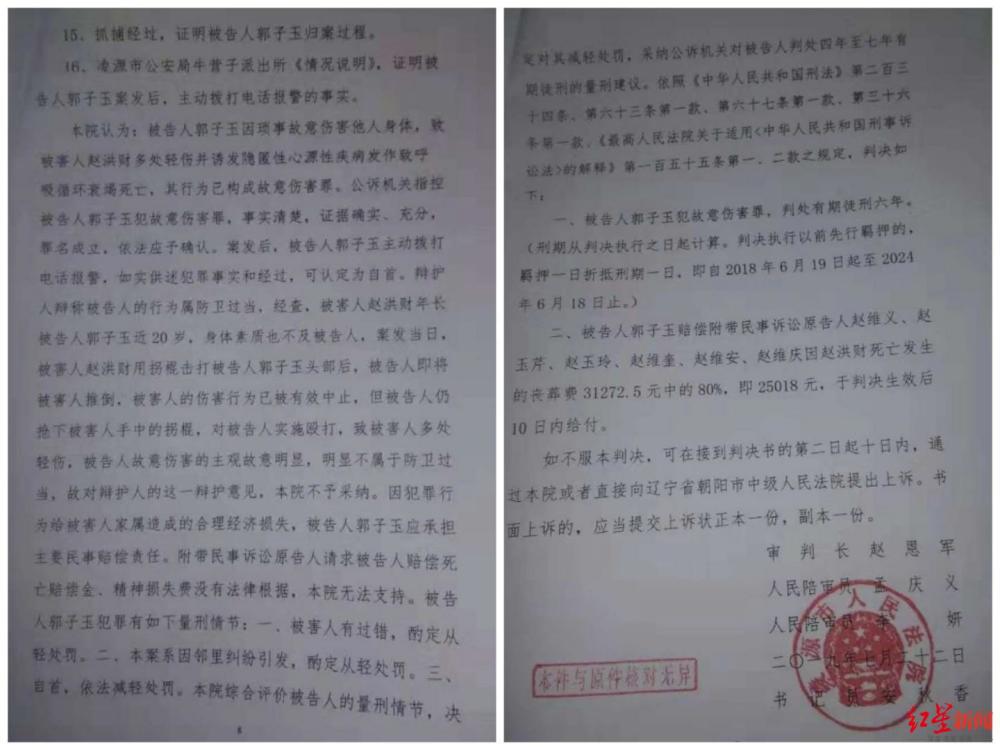 15、抓捕经过，证明被告人郭子玉归案过程。
16、凌源市公安局牛营子派出所《情况说明》，证明被
告人郭子玉案发后，主动拨打电话报警的事实。
本院认为：被告人郭子玉因琐事故意伤害他人身体，致
被害人赵洪财多处轻伤并诱发隐匿性心源性疾病发作致呼
吸循环衰竭死亡，其行为已构成故意伤害罪。公诉机关指控
被告人郭子玉犯故意伤害罪，事实清楚，证据确实、充分，
罪名成立，依法应予确认。案发后，被告人郭子玉主动拨打
电话报警，如实供述犯罪事实和经过，可认定为自首。辩护
人辩称被告人的行为属防卫过当，经查，被害人赵洪财年长
被告人郭子玉近20岁，身体素质也不及被告人，案发当日，
被害人赵洪财用拐棍击打被告人郭子玉头部后，被告人即将
被害人推倒，被害人的伤害行为已被有效中止，但被告人仍
抢下被害人手中的拐棍，对被害人实施殴打，致被害人多处
轻伤，被告人故意伤害的主观故意明显，明显不属于防卫过
当，故对辩护人的这一辩护意见，本院不予采纳。因犯罪行
为给被害人家属造成的合理经济损失，被告人郭子玉应承担
主要民事赔偿责任。附带民事诉讼原告人请求被告人赔偿死
亡赔偿金、精神损失费没有法律根据，本院无法支持。被告
人郭子玉犯罪有如下量刑情节：一、被害人有过错，酌定从
轻处罚。二、本案系因邻里纠纷引发，酌定从轻处罚。三、
自首，依法减轻处罚。本院综合评价被告人的量刑情节，决
8
定对其减轻处罚，采纳公诉机关对被告人判处四年至七年有
期徒刑的量刑建议。依照《中华人民共和国刑法》第二百三
十四条、第六十三条第一款、第六十七条第一款、第三十六
条第一款、《最高人民法院关于适用<中华人民共和国刑事诉
讼法>的解释》第一百五十五条第一、二款之规定，判决如
下：
一、被告人郭子玉犯故意伤害罪，判处有期徒刑六年。
（刑期从判决执行之日起计算。判决执行以前先行羁押的，
羁押一日折抵刑期一日，即自2018年6月19日起至2024
年6月18日止。）
二、被告人郭子玉赔偿附带民事诉讼原告人赵维义、赵
玉芹、赵玉玲、赵维奎、赵维安、赵维庆因赵洪财死亡发生
的丧葬费31272.5元中的80%，即25018元，于判决生效后
10日内给付。
如不服本判决，可在接到判决书的第二日起十日内，通
过本院或者直接向辽宁省朝阳市中级人民法院提出上诉。书
面上诉的，应当提交上诉状正本一份，副本一份。
审判长 赵恩军
人民陪审员 孟庆义
人民陪审员 李妍
二〇一九年七月二十二日
书记员 安秋香
本件与原件核对无异
凌源市人民法院
红星新闻